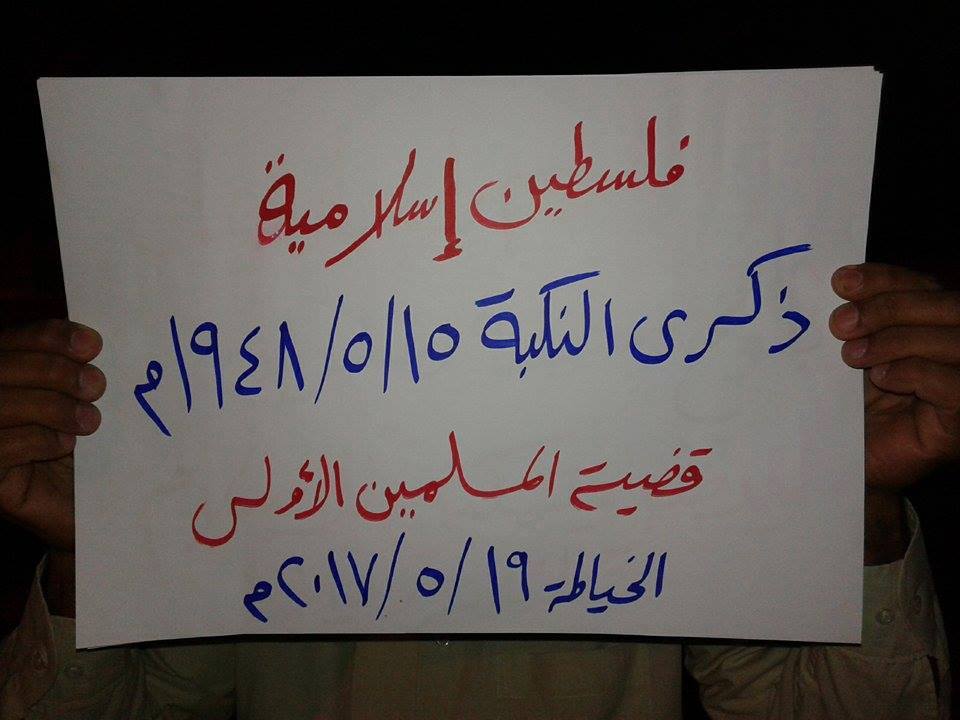 فلسطين إسلامية
ذكرى النكبة ١٥/٥/١٩٤٨م
قضية المسلمين الأولى
الخياطة ١٩/٥/٢٠١٧م